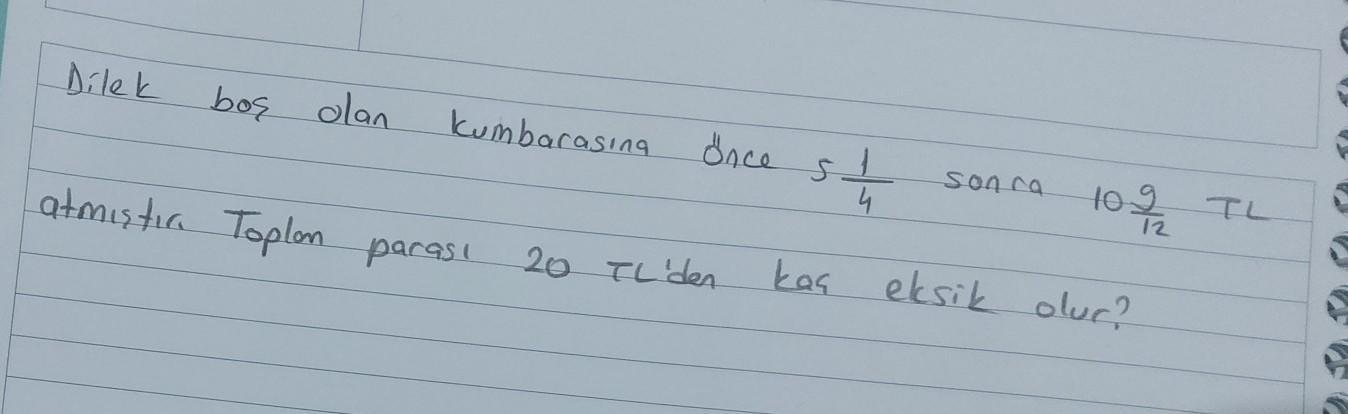 Dilek boş olan kumbarasına önce 5 1/4 sonra 10 9/12 TL
atmıştır. Toplam parası 20 TL'den kaç eksik olur?